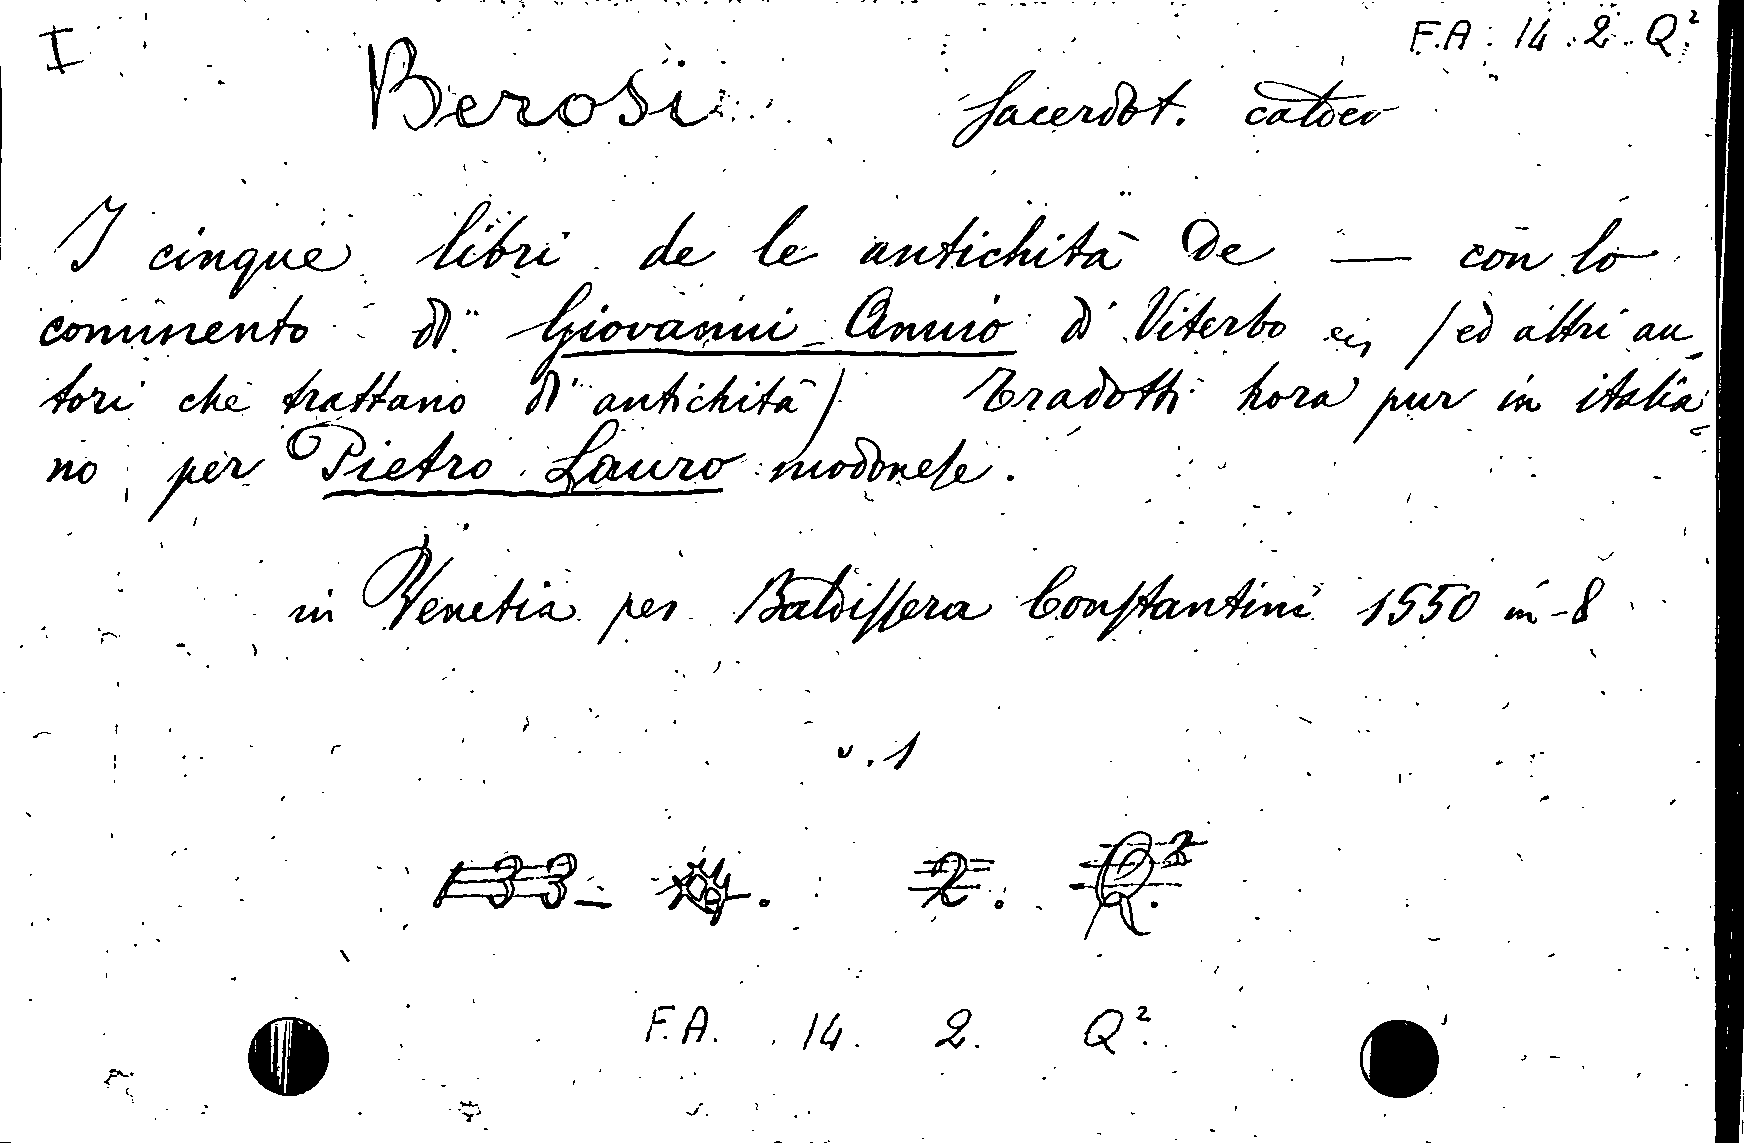 I
F.A. 14. 2. Q².
Berosi sacerdot. caldeo
I cinque libri de le antichità de — con lo
commento di Giovanni Annio di Viterbo (ed altri au
tori che trattano di antichità) Tradotti hora pur in italia
no per Pietro Lauro modonese.
in Venetia per Baldissera Constantini 1550 in-8
v. 1
133- 2. Q².
F.A. 14. 2. Q².